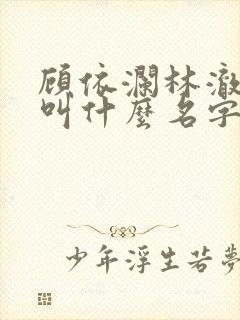 顾依澜林澈
叫什麼名字
少年浮生若夢